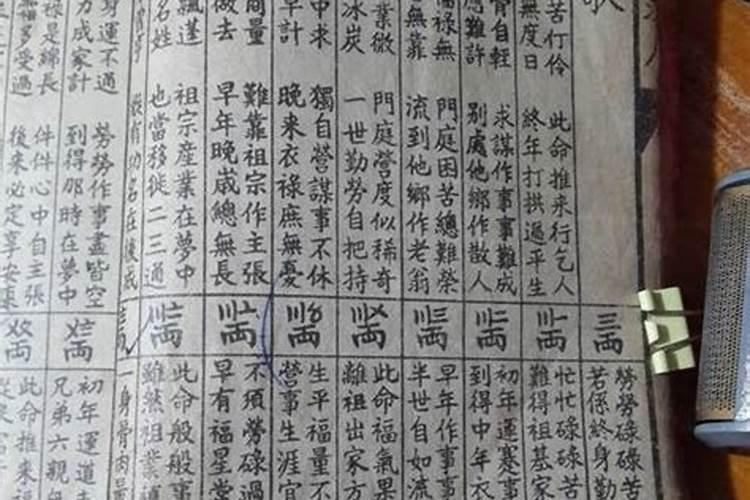 苦仃伶 此命推来行乞人
無度日 終年打拱過平生
骨自輕 求謀作事事難成
應難許 别處他鄉作散人
福禄無 門庭困苦總難榮
無靠 流到他鄉作老翁
業微 門庭營度似稀奇
冰炭 一世勤勞自把持
中求 獨自營謀事不休
早計 晚来衣禄庶無憂
商量 難靠祖宗作主張
做去 早年晚歲總無長
飄蓬 祖宗産業在夢中
名姓 也當移徙二三通
身運不通 勞勞作事盡皆空
力成家計 到得那時在夢中
禄是綿長 件件心中自主張
福多受過 後来必定享安泰
三両
〣一両
〣二両
〣三両
〣〤両
〣〥両
〣〦両
〣〧両
〤三両
〤〤両
勞勞碌碌苦
若係終身勤
忙忙碌碌苦
難得祖基家
初年運蹇事
到得中年衣
早年作事事
半世自如流
此命福氣果
離祖出家方
生平福量不
營事生涯宜
不須勞碌過
早有福星常
此命般般事
雖然祖業
一身骨肉
初年運道
兄弟六親
此命推来福